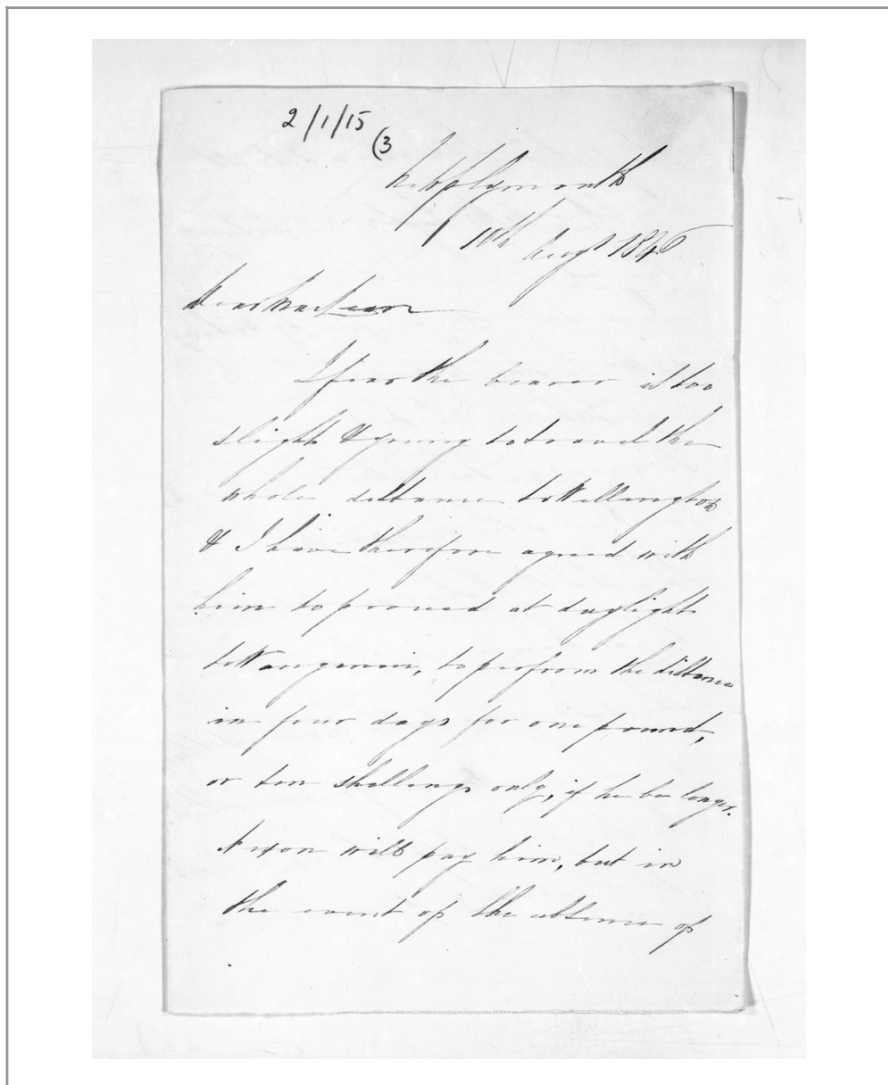 2/1/15
(3
New Plymouth
10th Augt 1846
Dear MacLean
I fear the bearer is too
slight & young to travel the
whole distance to Wellington
& I have therefore agreed with
him to proceed at daylight
to Wanganui, to perform the distance
in four days for one pound,
or ten shillings only, if he be longer.
Nixon will pay him, but in
the event of the absence of